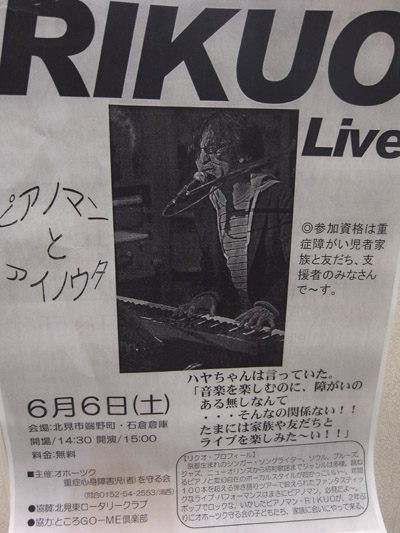 RIKUO
Live
ピアノマン
と
アイノウタ
◎参加資格は重
症障がい児者家
族と友だち、支
援者のみなさん
で~す。
ハヤちゃんは言っていた。
「音楽を楽しむのに、障がいの
ある無しなんて
・・・そんなの関係ない!!
たまには家族や友だちと
ライブを楽しみた~い!!」
6月6日(土)
会場:北見市端野町・石倉倉庫
開場/14:30 開演/15:00
料金:無料
■主催:オホーツク
重症心身障害児(者)を守る会
●協賛:北見東ロータリークラブ
●協力:ところGO-ME倶楽部
【リクオ・プロフィール】
京都生まれのシンガー・ソングライター。ソウル、ブルース、